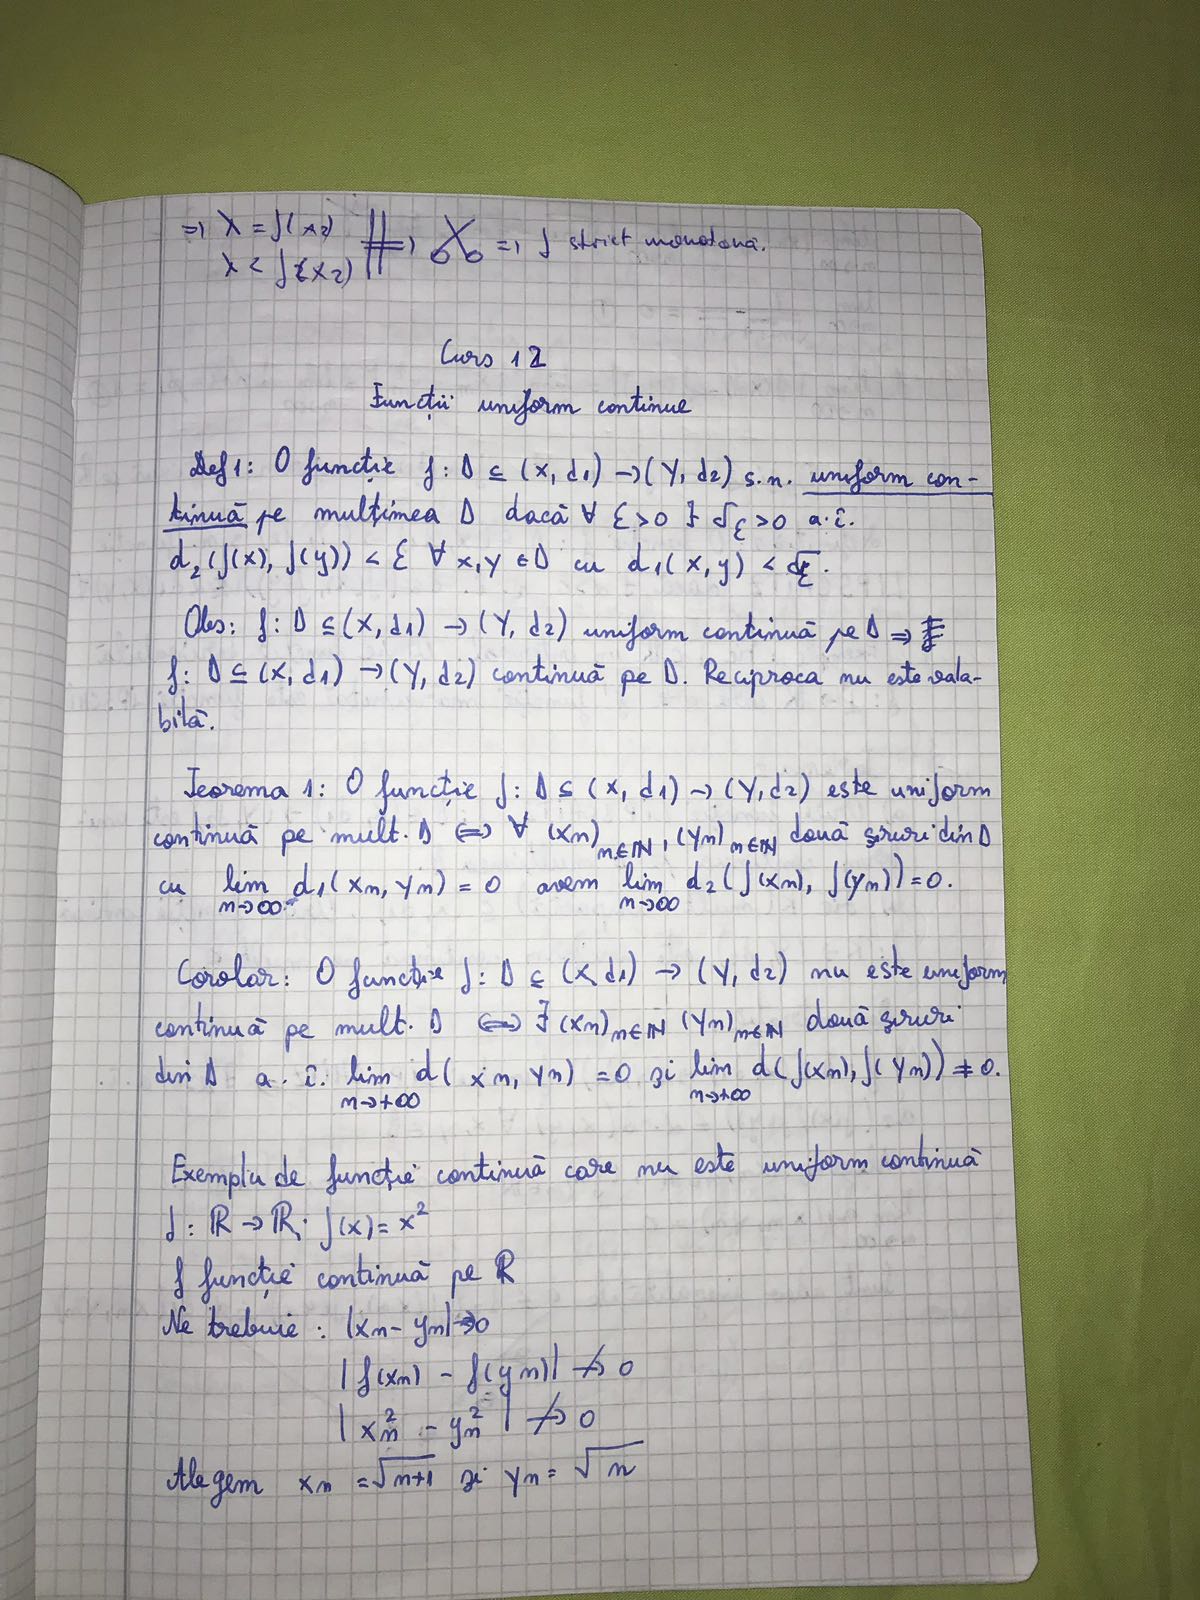 => λ = f(x2)
λ < f(x2) => => f strict monotonă.
Curs 12
Funcții uniform continue
Def 1: O funcție f: D ⊆ (X, d1) → (Y, d2) s.n. uniform con-
tinuă pe mulțimea D dacă ∀ ε > 0 ∃ δε > 0 a.î.
d2(f(x), f(y)) < ε ∀ x, y ∈ D cu d1(x, y) < δε.
Obs: f: D ⊆ (X, d1) → (Y, d2) uniform continuă pe D =>
f: D ⊆ (X, d1) → (Y, d2) continuă pe D. Reciproca nu este vala-
bilă.
Teorema 1: O funcție f: D ⊆ (X, d1) → (Y, d2) este uniform
continuă pe mult. D <=> ∀ (xn)n∈ℕ, (yn)n∈ℕ două șiruri din D
cu lim n→∞ d1(xn, yn) = 0 avem lim n→∞ d2(f(xn), f(yn)) = 0.
Corolar: O funcție f: D ⊆ (X, d1) → (Y, d2) nu este uniform
continuă pe mult. D <=> ∃ (xn)n∈ℕ (yn)n∈ℕ două șiruri
din D a.î. lim n→+∞ d(xn, yn) = 0 și lim n→+∞ d(f(xn), f(yn)) ≠ 0.
Exemplu de funcție continuă care nu este uniform continuă
f: ℝ → ℝ, f(x) = x²
f funcție continuă pe ℝ
Ne trebuie: |xn - yn| → 0
|f(xn) - f(yn)| ↛ 0
|xn² - yn²| ↛ 0
Alegem xn = √(n+1) și yn = √n